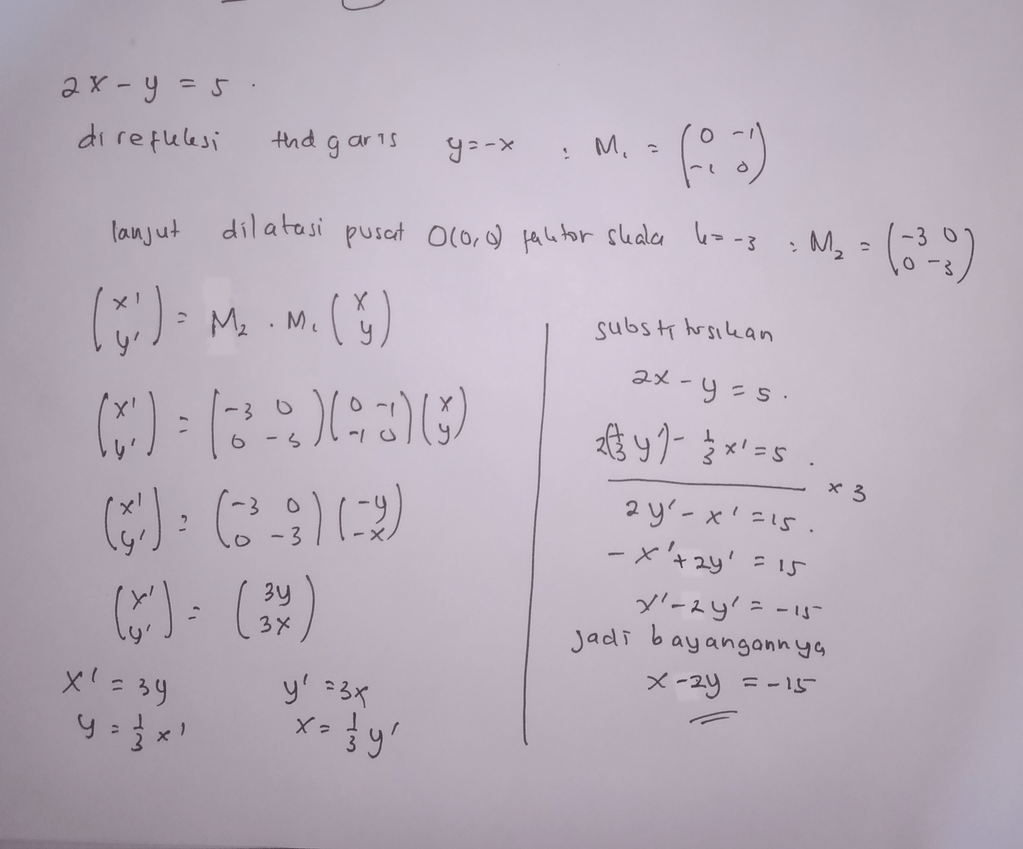 2x - y = 5 .
direfleksi thd garis y=-x : M₁ = (0 -1
-1 0)
lanjut dilatasi pusat O(0,0) faktor skala k=-3 : M₂ = (-3 0
0 -3)
(x'
y') = M₂ . M₁ (x
y)
(x'
y') = (-3 0
0 -3)(0 -1
-1 0)(x
y)
(x'
y') = (-3 0
0 -3)(-y
-x)
(x'
y') = (3y
3x)
x' = 3y y' = 3x
y = 1/3 x' x = 1/3 y'
substitusikan
2x - y = 5 .
2(1/3 y') - 1/3 x' = 5 .
x 3
2y' - x' = 15 .
- x' + 2y' = 15
x' - 2y' = -15
Jadi bayangannya
x - 2y = -15